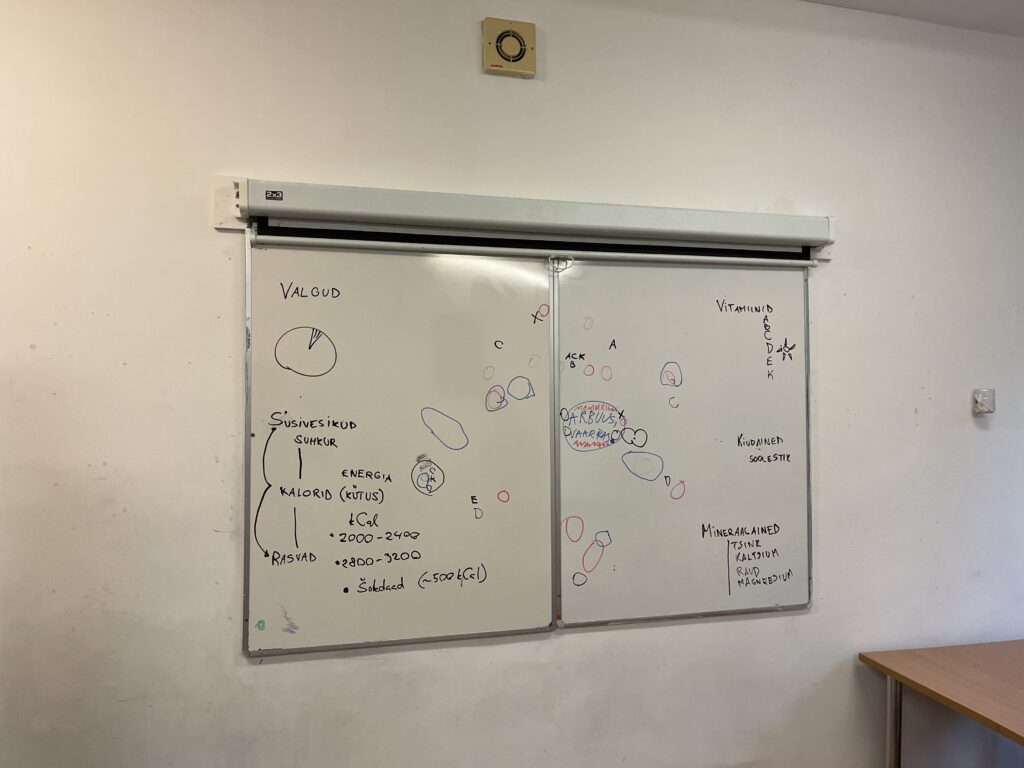 2x3
VALGUD
SÜSIVESIKUD
SUHKUR
ENERGIA
KALORID (KÜTUS)
kCal
• 2000-2400
RASVAD
• 2800-3200
• Šokolaad (~500 kCal)
X
C
E
D
A
ACK
B
C
MANDARIIN
ARBUUS,
VAARIKAS
ANANASS
X
D
D
VITAMIINID
A
B
C
D
E
K
KIUDAINED
SOOLESTIK
MINERAALAINED
TSINK
KALTSIUM
RAUD
MAGNEESIUM